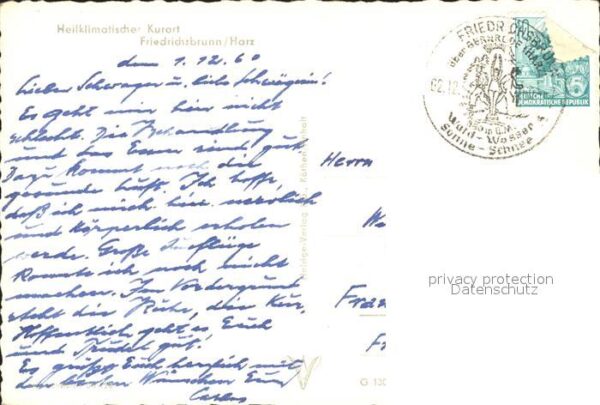 Heilklimatischer Kurort
Friedrichsbrunn/Harz
den 1.12.60
Lieber Schwager u. liebe Schwägerin!
Es geht mir hier nicht
schlecht. Die Behandlung
und das Essen sind gut
Dazu kommt noch die
gesunde Luft. Ich hoffe,
daß ich mich hier nervlich
und körperlich erholen
werde. Große Ausflüge
konnte ich noch nicht
machen. Im Vordergrund
steht die Ruhe, die Kur.
Hoffentlich geht es Euch
und Trudel gut.
Es grüßt Euch herzlich mit
den besten Wünschen Euer
Herrn
FRIEDRICHSBRUNN
02.12.
Wald - Wasser
Sonne - Schnee
DEUTSCHE
DEMOKRATISCHE REPUBLIK
5
privacy protection
Datenschutz